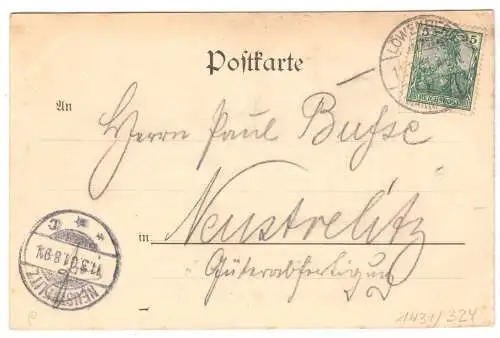 Postkarte
5 5
LÖWENBERG
An
Herrn Paul Bußse
in Neustrelitz
Güterabfertigung
NEUSTRELITZ
1431/324